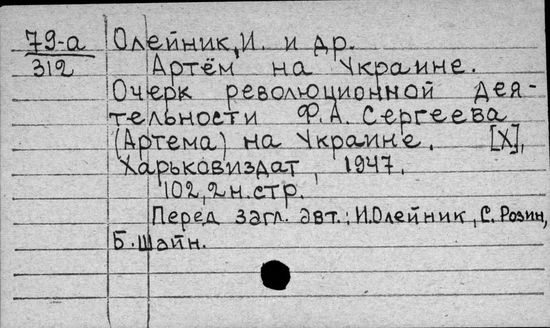 79-а Олейник, И. и др.
312 Артём на Украине.
Очерк революционной дея-
тельности Ф.А. Сергеева
(Артема) на Украине. [Х],
Харьковиздат, 1947.
102,2н.стр.
Перед загл. авт.: И.Олейник, С. Розин,
Б. Шайн.